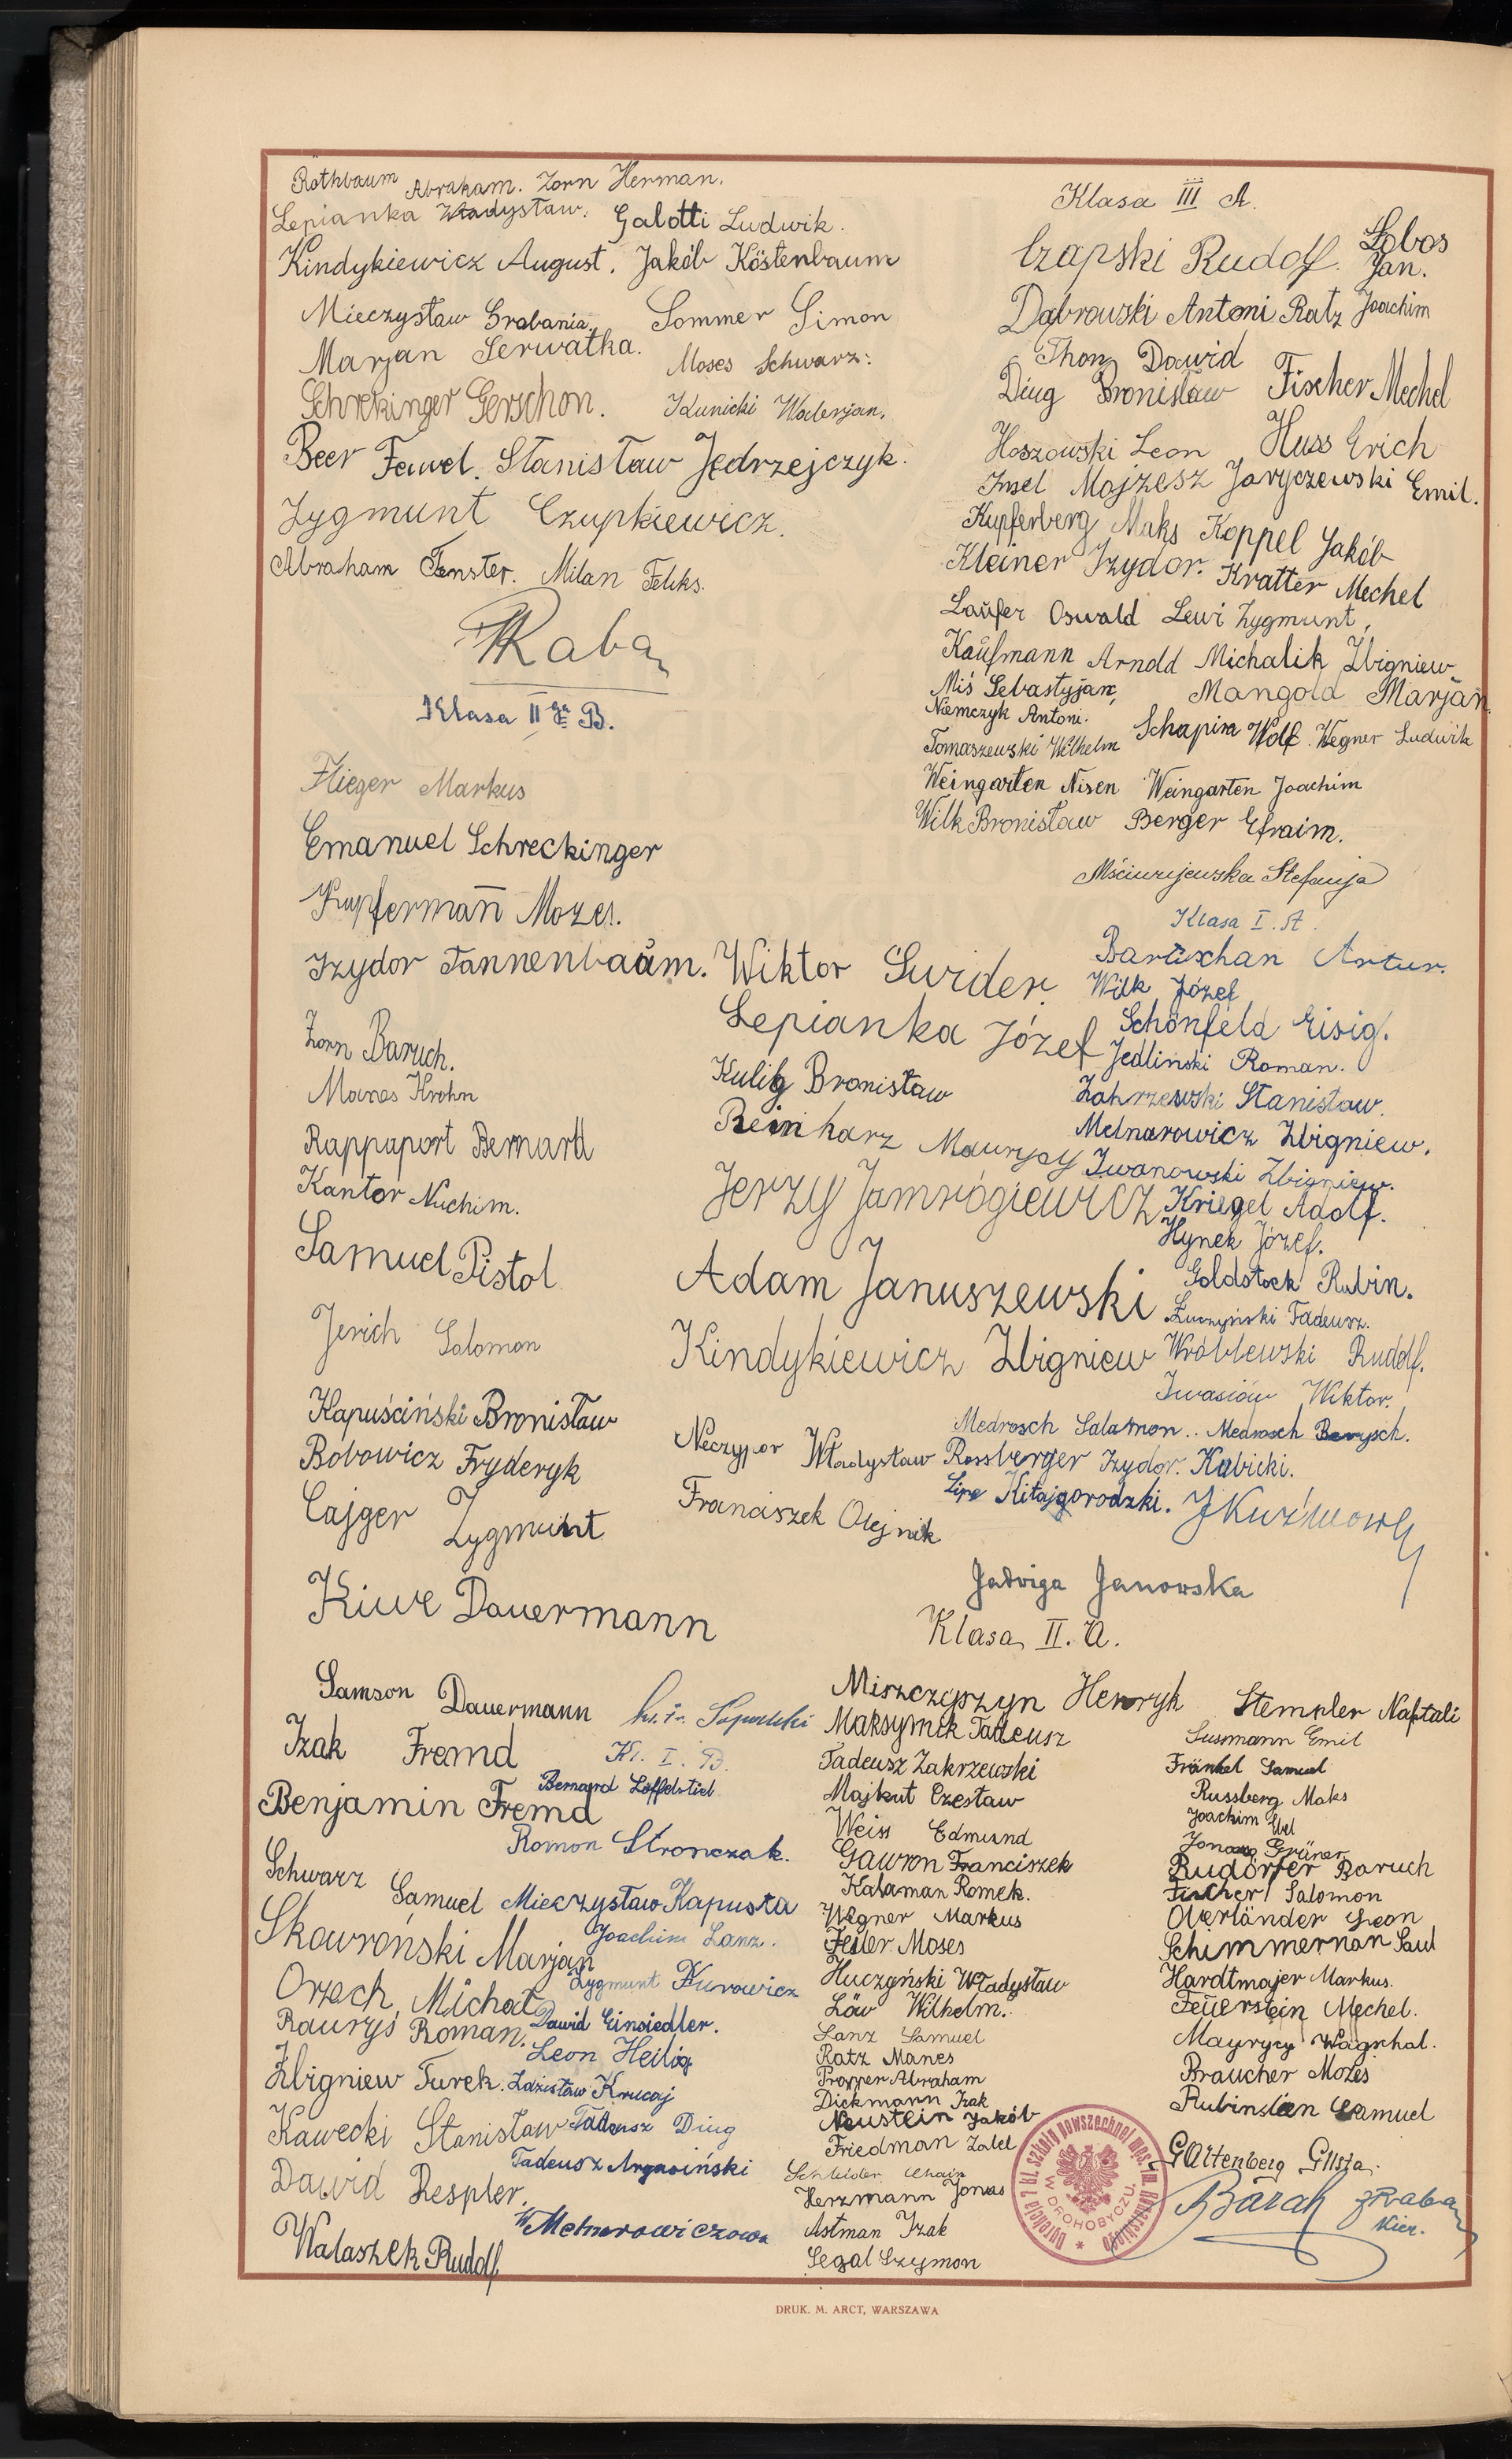 Rothbaum Abraham. Zorn Herman.
Lepianka Władysław. Galotti Ludwik.
Kindykiewicz August. Jakób Köstenbaum
Mieczysław Grabania. Sommer Simon
Marjan Serwatka. Moses Schwarz.
Schrekinger Gerschon. Idunicki Walerjan.
Beer Fawel. Stanisław Jędrzejczyk.
Zygmunt Czupkiewicz.
Abraham Fenster. Milan Feliks.
Raba
Klasa II ga B.
Flieger Markus
Emanuel Schreckinger
Kupfermann Mozes.
Izydor Tannenbaum.
Zorn Baruch.
Manes Krohn
Rappaport Bernard
Kantor Nuchim.
Samuel Pistol
Jerich Salomon
Kapuściński Bronisław
Bobowicz Fryderyk
Cajger Zygmunt
Kiwe Dauermann
Samson Dauermann
Izak Fremd
Benjamin Fremd
Schwarz Samuel
Skowroński Marjan
Orzech Michał
Raurys Roman.
Zbigniew Turek.
Kawecki Stanisław
Dawid Respler.
Walaszek Rudolf
Wiktor Swider.
Lepianka Józef
Kulig Bronisław
Reinharz Maurycy
Jerzy Jamrógiewicz
Adam Januszewski
Kindykiewicz Zbigniew
Neczypor Władysław
Franciszek Olejnik
Kl. I. B.
Bernard Löffelstiel
Roman Stronczak.
Mieczysław Kapusta
Joachim Lanz.
Zygmunt Kurowicz
Dawid Einsiedler.
Leon Heilig
Zdzisław Krucaj
Tadeusz Diug
Tadeusz Argasiński
W Melnarowiczowa
Klasa III A.
Czapski Rudolf. Łobos Jan.
Dąbrowski Antoni Ratz Joachim
Thon Dawid
Diug Bronisław Fischer Mechel
Hoszowski Leon Huss Erich
Insel Mojżesz Jaryczewski Emil.
Kupferberg Maks Koppel Jakób
Kleiner Izydor. Kratter Mechel
Laufer Oswald Lewi Zygmunt,
Kaufmann Arnold Michalik Zbigniew
Miś Sebastyjan, Mangold Marjan
Niemczyk Antoni.
Tomaszewski Wilhelm Schapira Wolf. Wegner Ludwik
Weingarten Nisen Weingarten Joachim
Wilk Bronisław Berger Efraim.
Mściwujewska Stefanja
Klasa I. A.
Bartischan Artur.
Wilk Józef
Schönfeld Eisig.
Jedliński Roman.
Zahrzewski Stanisław.
Melnarowicz Zbigniew.
Iwanowski Zbigniew.
Kriegel Adolf.
Hynek Józef.
Goldstock Rubin.
Łuczyński Tadeusz.
Wróblewski Rudolf.
Iwasiów Wiktor.
Medrosch Salamon.. Medrosch Berysch.
Rossberger Izydor. Kubicki.
Lipe Kitajgorodzki. J Kuźmowy
Jadwiga Janowska
Klasa II. A.
Miszczyszyn Henryk
Maksymik Tadeusz
Tadeusz Zakrzewski
Majkut Czesław
Weiss Edmund
Gawron Franciszek
Kałaman Romek.
Wegner Markus
Feiler Moses
Huczyński Władysław
Löw Wilhelm.
Lanz Samuel
Ratz Manes
Propper Abraham
Dickmann Izak
Neustein Jakób
Friedman Zalel
Schleider Chaim
Herzmann Jonas
Astman Izak
Segal Szymon
Stempler Naftali
Sussmann Emil
Fränkel Samuel
Russberg Maks
Joachim Ebel
Jonasz Grüner
Rudörfer Baruch
Fischer Salomon
Oberländer Leon
Schimmerman Saul
Hardtmajer Markus.
Feuerstein Mechel.
Maurycy Wagschal.
Braucher Mozes
Rubinstein Samuel
Gartenberg Gusta.
Barah ZRaba
Kier.
W DROHOBYCZU
DRUK. M. ARCT, WARSZAWA